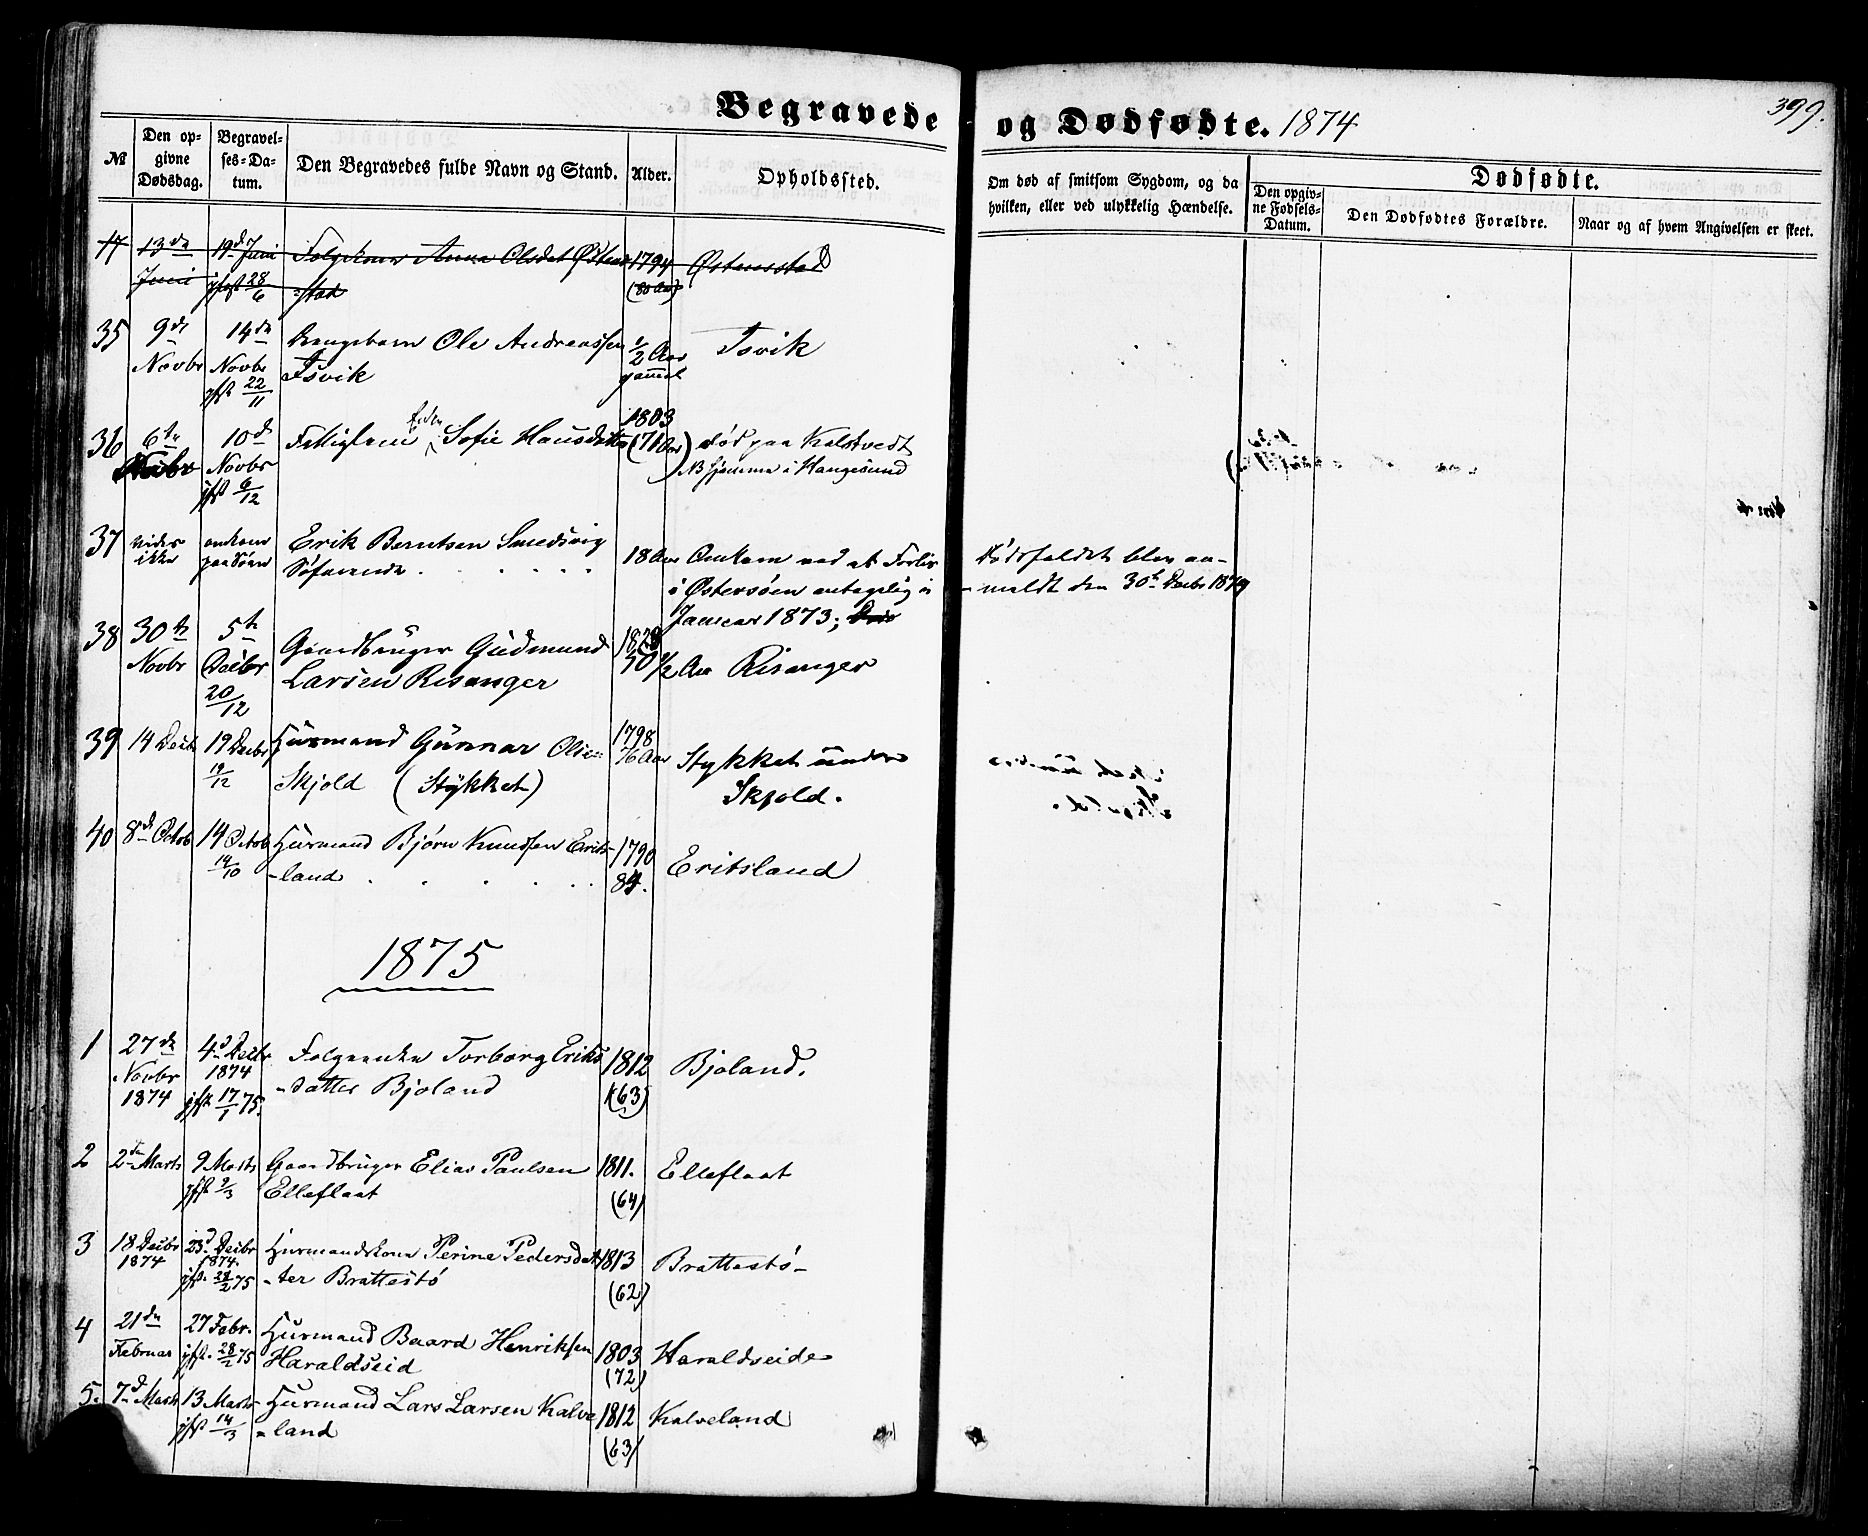 Begravede og Dødfødte. 1874
399.
№
Den opgivne Dødsdag.
Begravelses-Datum.
Den Begravedes fulde Navn og Stand.
Alder.
Opholdssted.
Om død af smitsom Sygdom, og da hvilken, eller ved ulykkelig Hændelse.
Dødfødte.
Den opgivne Fødsels-Datum.
Den Dødfødtes Forældre.
Naar og af hvem Angivelsen er skeet.
17 13de Juni 19d Juni jfst 28/6 Anna Olsdat Østensstad 1794 (80 Aar) Østensstad
35 9de Novbr 14de Novbr jfst 22/11 Ole Andreassen Isvik 1/2 Aar gammel Isvik
36 6te Novbr 10d Novbr jfst 6/12 Sofie Hansdatter 1803 (71 Aar) død paa Kalstvedt
NB hjemme i Haugesund
37 vides ikke omkom paa Søen Erik Berntsen Smedsvig
Søfarende 18 Aar Omkom ved et Forlis
i Østersøen antagelig i
Januar 1873;
Dødsfaldet blev an-
meldt den 30te Decbr 1874
38 30te Novbr 5te Decbr 20/12 Gaardbruger Gudmund
Larsen Risanger 50 1/2 Aar Risanger
39 14 Decbr 19 Decbr 19/12 Huusmand Gunnar Olsen
Skjold (Stykket) 1798 76 Aar Stykket under
Skjold.
40 8de Octob 14 Octob 14/10 Huusmand Bjørn Knudsen Erits-
-land 1790 84. Eritsland
1875
1 27de Novbr 1874 4d Decbr 1874 jfst. 17/1 75. Torborg Eriks
-datter Bjoland 1812 (63) Bjoland.
2 2den Marts 9 Marts jfst 9/3 Gaardbruger Elias Paulsen
Elleflaat 1811. (64) Elleflaat
3 18 Decbr 1874 23d Decbr 1874. jfst. 28/2 75 Huusmandskone Perine Pedersdat
-ter Brattestø 1813 (62) Brattestø-
4 21de Februar 27 Febr. jfst. 28/2 75 Huusmand Baard Henriksen
Haraldseid 1803 (72) Haraldseide
5. 7d Marts 13 Marts jfst 14/3 Huusmand Lars Larsen Kalve
-land 1812 (63) Kalveland